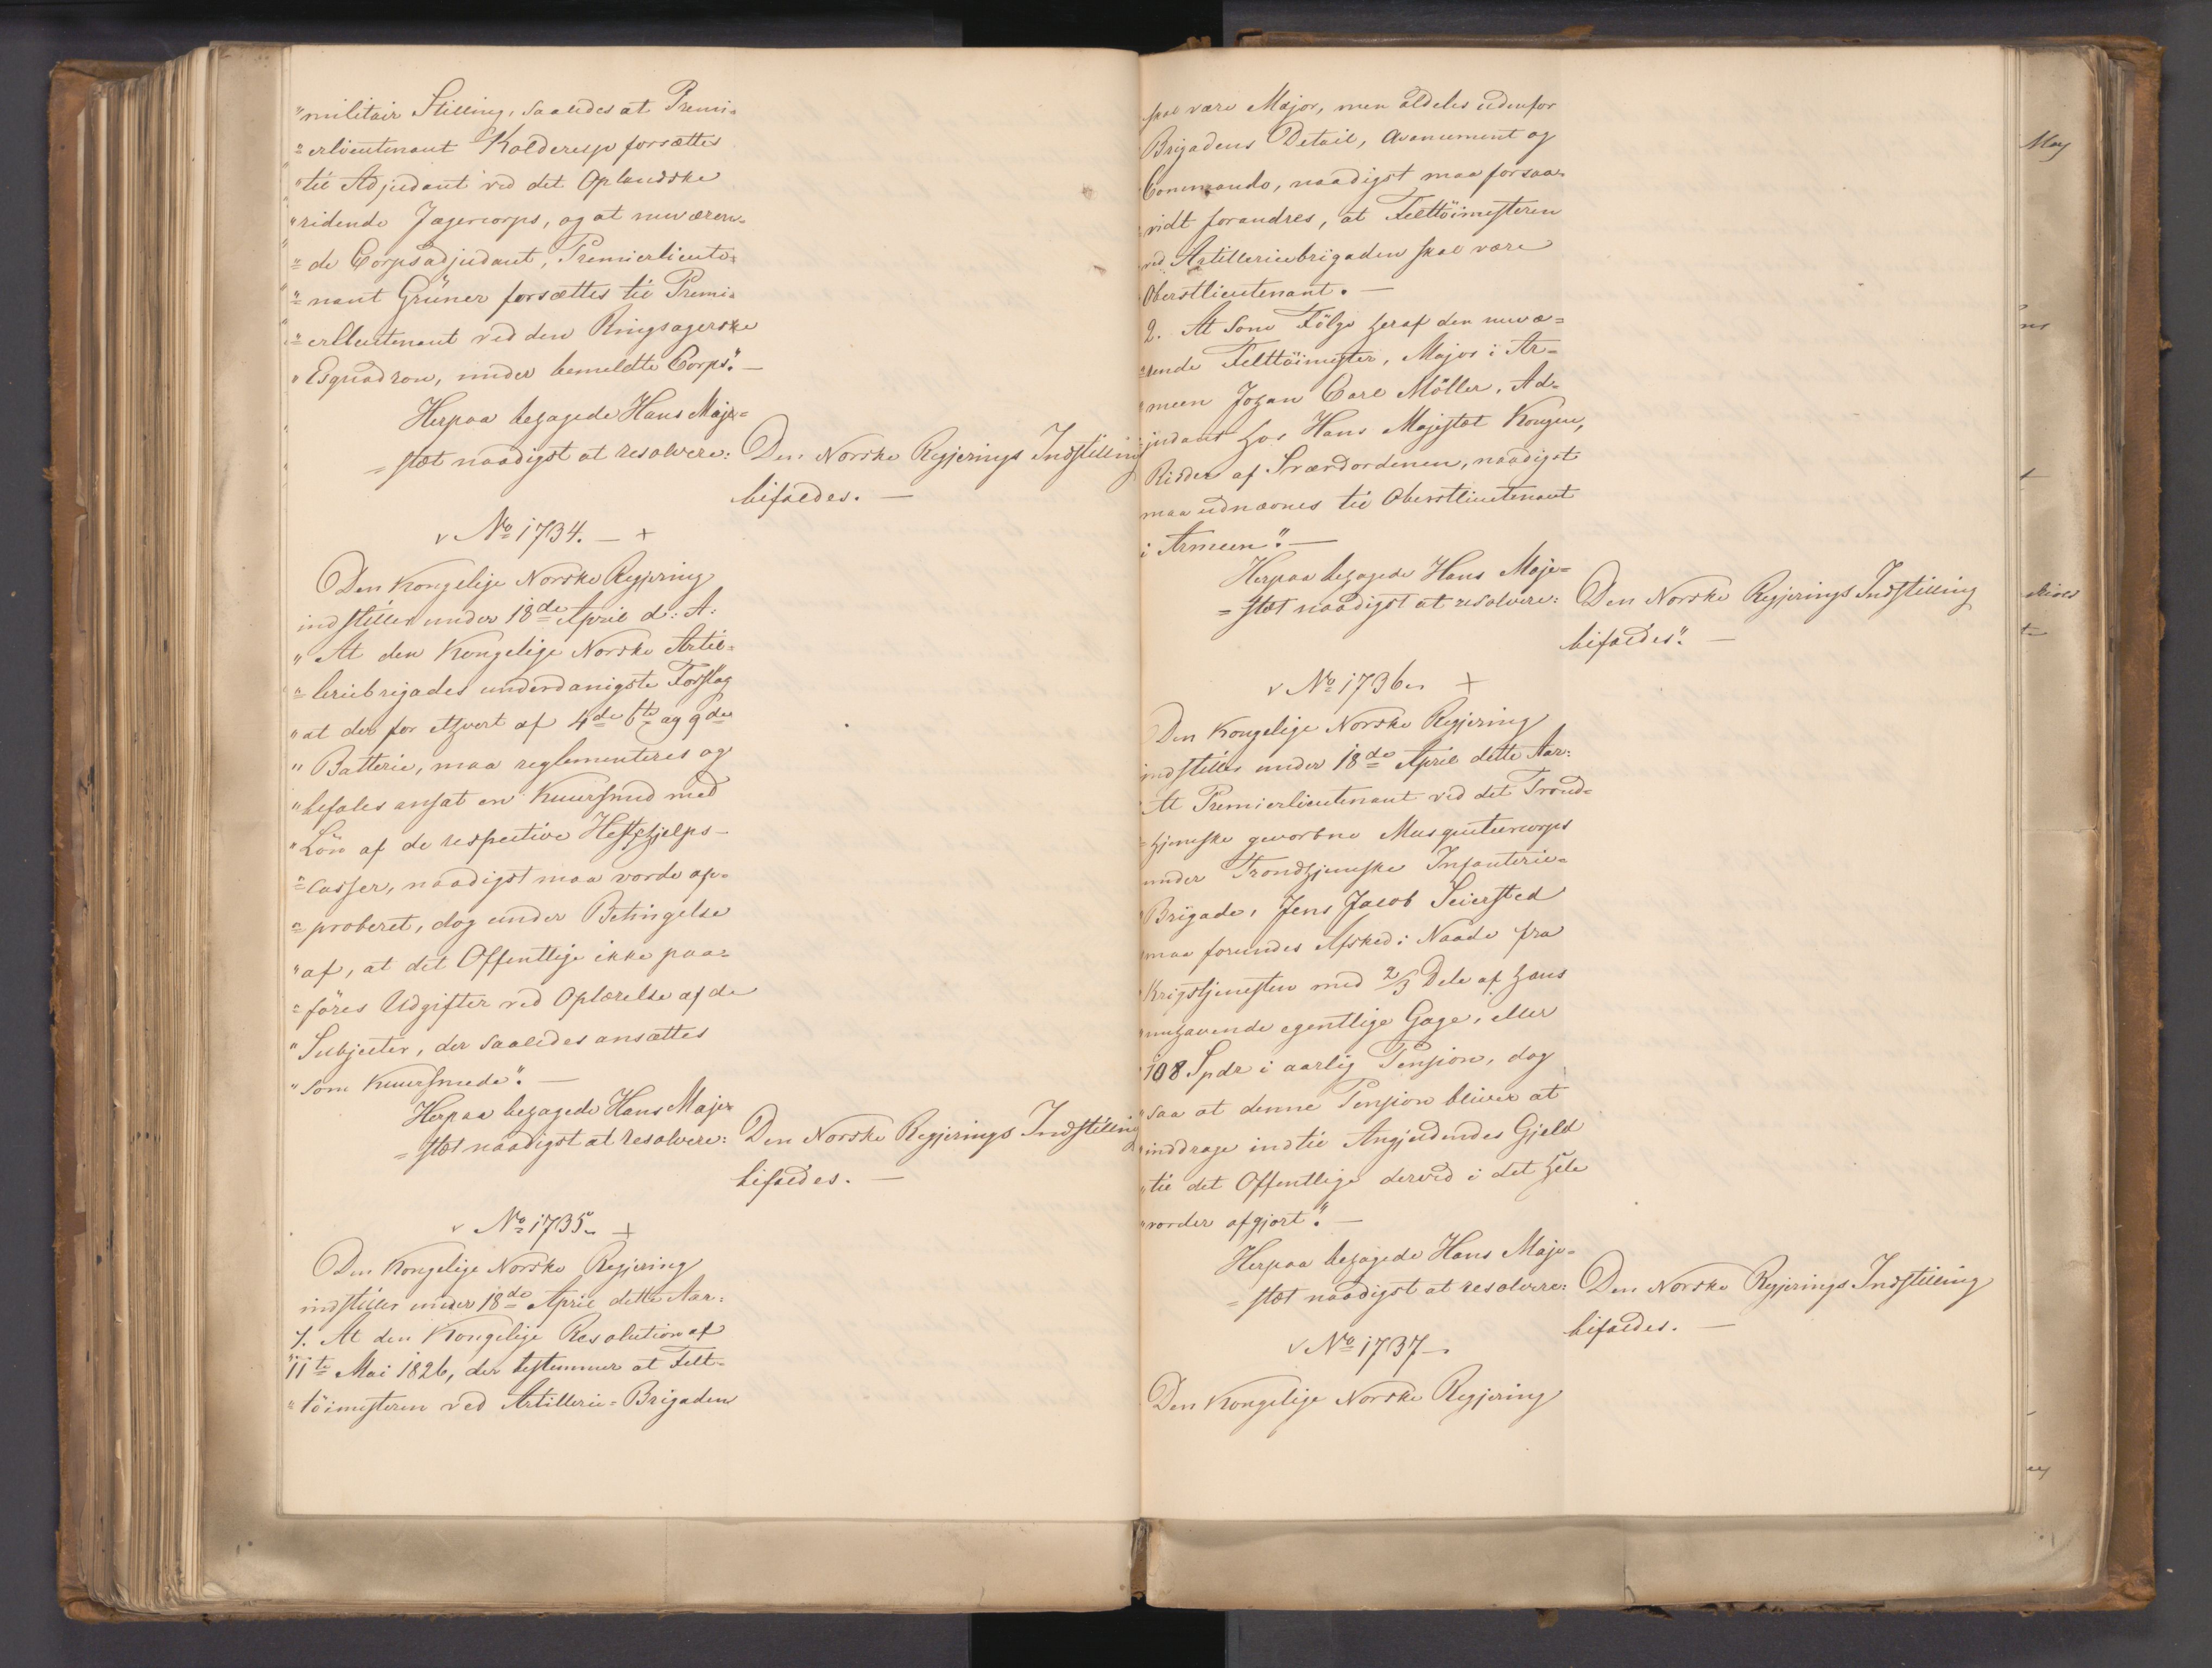 "militair Stilling, saaledes at Premi-
"erlieutenant Kolderup forsættes
"til Adjudant ved det Oplandske
"ridende Jagercorps, og at nuværen-
"de Corpsadjudant, Premierlieute-
"nant Grüner forsættes til Premi-
"erlieutenant ved den Ringsagerske
"Esquadron, under bemeldte Corps". —
Herpaa behagede Hans Maje=
=stæt naadigst at resolvere: Den Norske Regjerings Indstilling
bifaldes. —
v No 1734. — +
Den Kongelige Norske Regjering
indstiller under 18de April d: A:
"At den Kongelige Norske Artil=
"leriebrigades underdanigste Forslag
"at der for ethvert af 4de 6te og 9de
"Batterie, maa reglementeres og
"befales ansat en Kuursmed med
"Lön af de respective Hesthjelps-
"=casser, naadigst maa vorde ap-
"=proberet, dog under Betingelse
"af, at det Offentlige ikke paa=
"=föres Udgifter ved Oplærelse af de
"Subjecter, der saaledes ansættes
"som Kuursmede". —
Herpaa behagede Hans Maje=
=stæt naadigst at resolvere: Den Norske Regjerings Indstilling
bifaldes. —
v No 1735. +
Den Kongelige Norske Regjering
indstiller under 18de April dette Aar:
"1. At den Kongelige Resolution af
"11te Mai 1826, der bestemmer at Felt-
"töimesteren ved Artillerie=Brigaden
skal være Major, men aldeles udenfor
Brigadens Detail, Avancement og
Commando, naadigst maa forsaa-
vidt forandres, at Felttöimesteren
ved Artilleriebrigaden skal være
Oberstlieutenant. —
2. At som Fölge heraf den nuvæ=
=rende Felttöimester, Major i Ar=
meen Johan Carl Möller, Ad=
judant hos Hans Majestæt Kongen,
Ridder af Sværdordenen, naadigst
maa udnævnes til Oberstlieutenant
i Armeen". —
Herpaa behagede Hans Maje=
=stæt naadigst at resolvere: Den Norske Regjerings Indstilling
bifaldes". —
v No 1736. +
Den Kongelige Norske Regjering
indstiller under 18de April dette Aar:
At Premierlieutenant ved det Trond=
=hjemske gevorbne Musqueteercorps
under Trondhjemske Infanterie=
Brigade, Jens Jacob Seiersted
maa forundes Afsked i Naade fra
Krigstjenesten med 2/3 Dele af hans
nuhavende egentlige Gage, eller
108 Spdr i aarlig Pension, dog
"saa at denne Pension bliver at
"inddrage indtil Angjeldendes Gjeld
"til det Offentlige derved i det hele
"vorder afgjort". —
Herpaa behagede Hans Maje=
=stæt naadigst at resolvere: Den Norske Regjerings Indstilling
bifaldes. —
v No 1737 —
Den Kongelige Norske Regjering